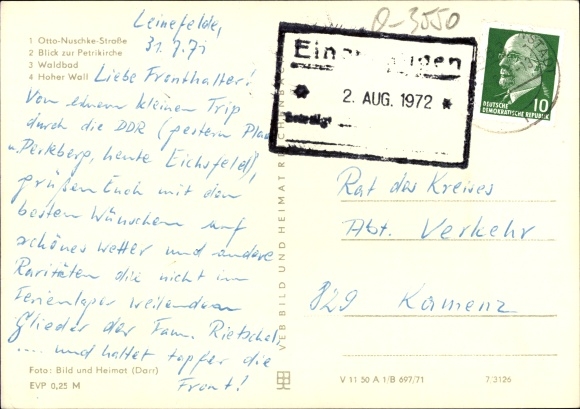 Leinefelde,
31.7.71
1 Otto-Nuschke-Straße
2 Blick zur Petrikirche
3 Waldbad
4 Hoher Wall
Liebe Fronthalter!
Von einem kleinen Trip
durch die DDR (gestern Plau
u. Perleberg, heute Eichsfeld),
grüßen Euch mit den
besten Wünschen auf
schönes Wetter und andere
Raritäten die nicht im
Ferienlager weilenden
Glieder der Fam. Rietschel,
.... und haltet tapfer die
Front!
Foto: Bild und Heimat (Darr)
EVP 0,25 M
VEB BILD UND HEIMAT REICHENBACH
D-3550
Eingegangen
* 2. AUG. 1972 *
Erledigt
DEUTSCHE
DEMOKRATISCHE REPUBLIK
10
Rat des Kreises
Abt. Verkehr
829 Kamenz
V 11 50 A 1/B 697/71
7/3126